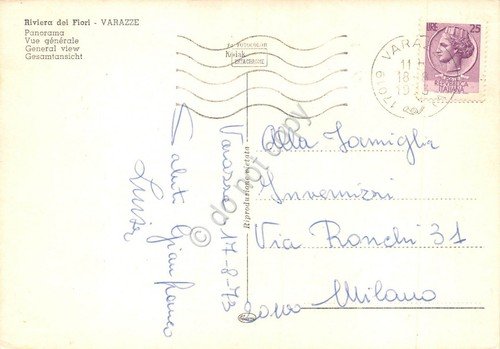 Riviera dei Fiori - VARAZZE
Panorama
Vue générale
General view
Gesamtansicht
Kodak
LIRE 25
REPUBBLICA
ITALIANA
17019 VARAZZE
11
18-
19
Riproduzione vietata
Varazze 17-8-73
Saluti Gianfranco
Luisa
Alla Famiglia
Invernizzi
Via Ronchi 31
20100 Milano
© do not copy